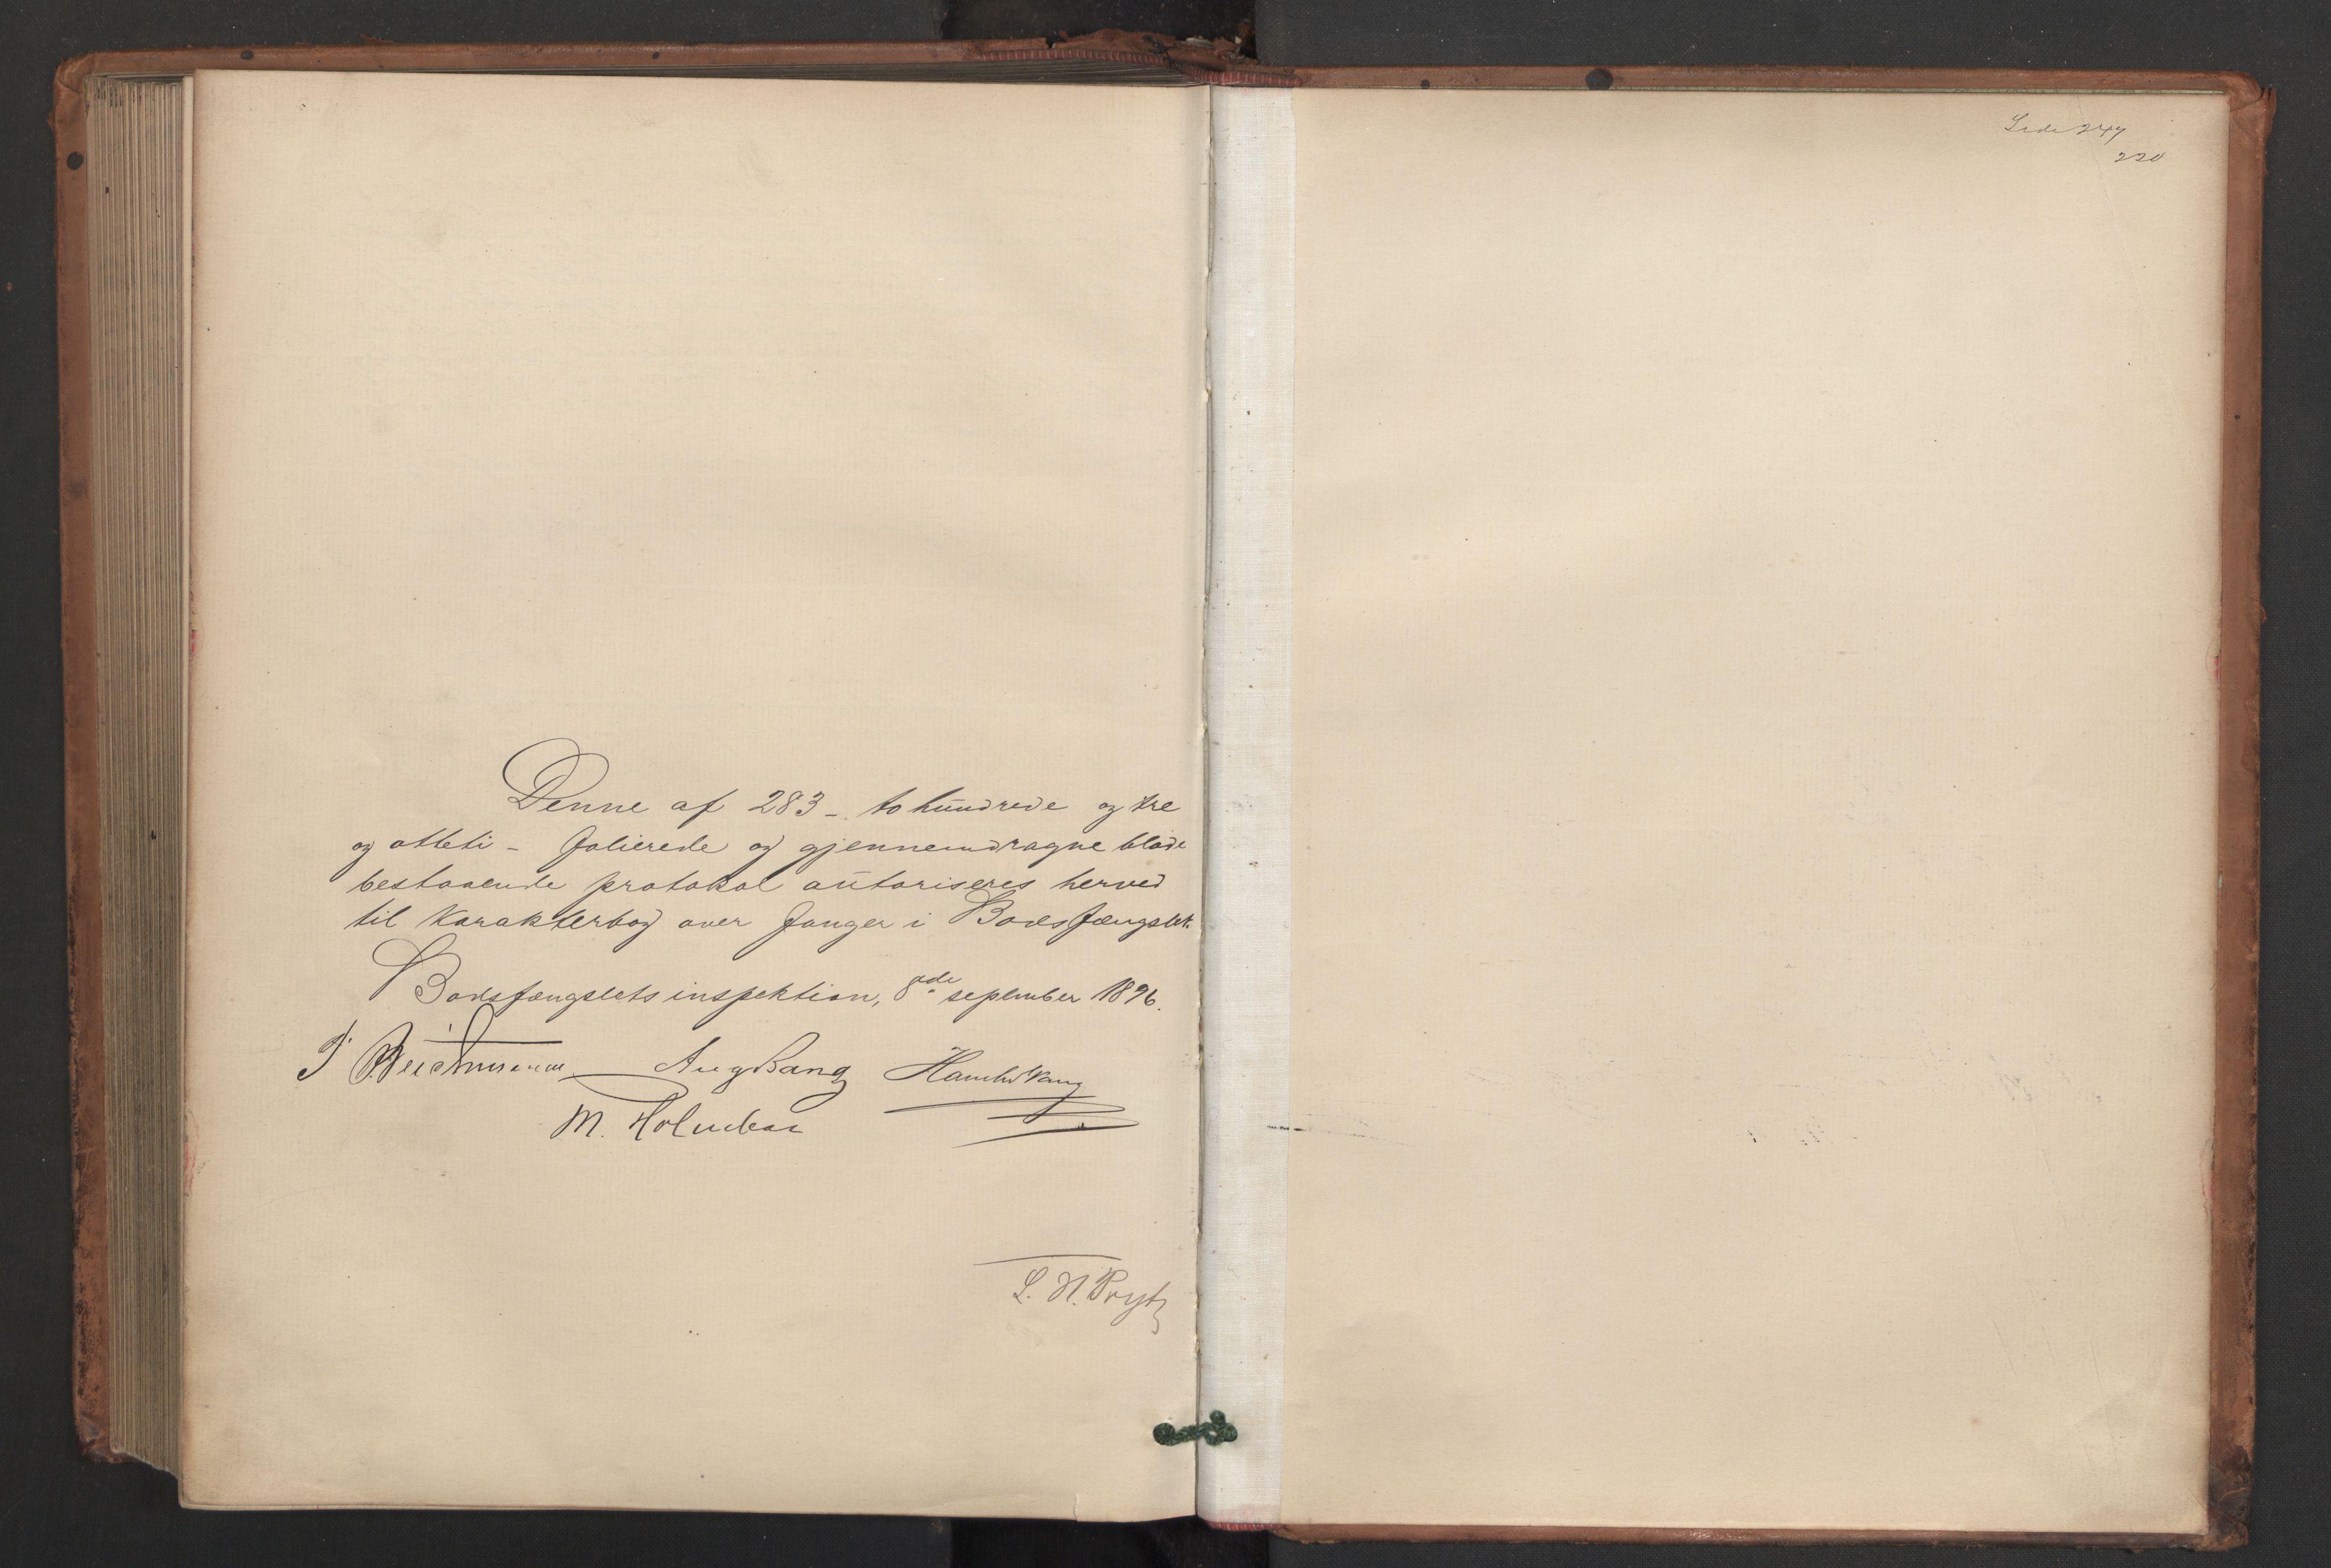 Denne af 283 - to hundrede og tre
og otteti - folierede og gjennemdragne blade
bestaaende protokol autoriseres herved
til karakterbog over fanger i Bodsfængslet.
Bodsfængslets inspektion, 8de september 1896.
Aug Bang
M. Holmboe
L. H. Prytz
Side 247
220